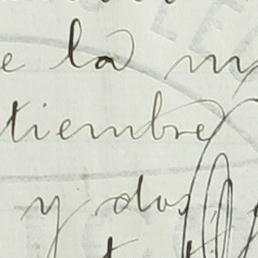 e la m
tiembre
y dos